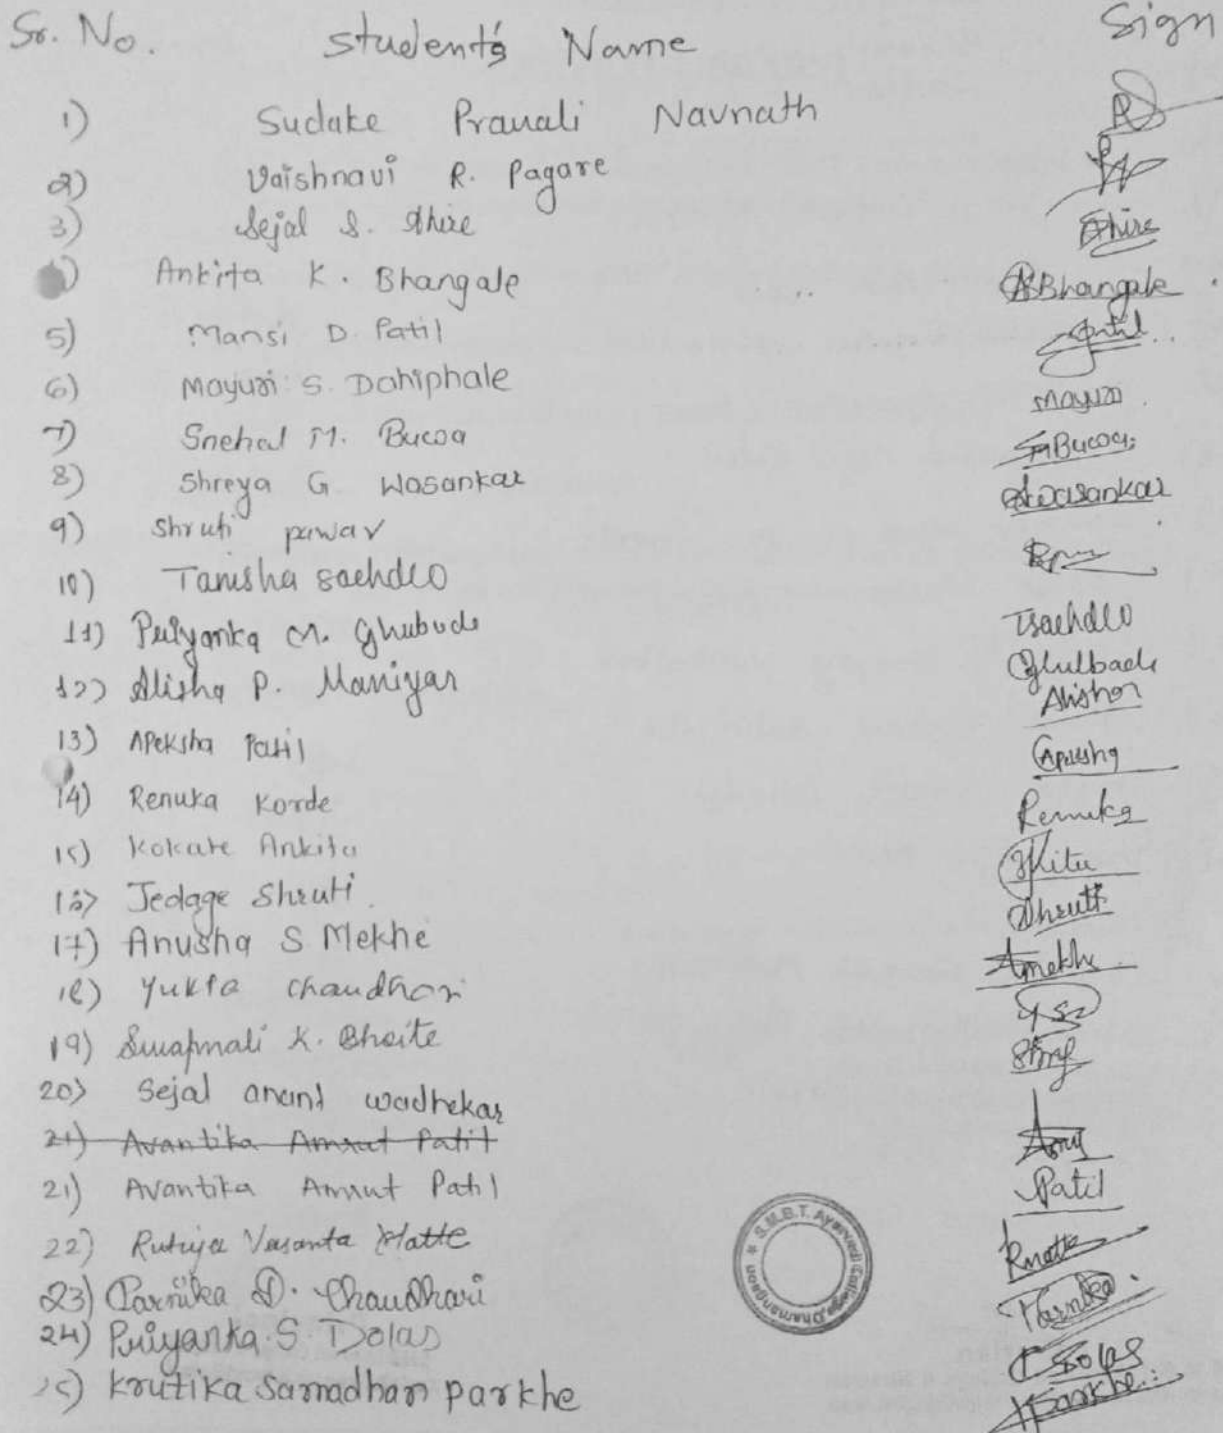 Sr. No. Student's Name Sign
1) Sudake Pranali Navnath
2) Vaishnavi R. Pagare
3) Sejal S. Ahire Ahire
) Ankita K. Bhangale ABhangale
5) Mansi D. Patil Patil
6) Mayuri S. Dahiphale Mayuri
7) Snehal M. Bucoa SMBucoa
8) Shreya G Wasankar SWasankar
9) Shruti pawar
10) Tanisha sachdeo
11) Priyanka M. Ghubude Tsachdeo
12) Alisha P. Maniyar Ghulbade
Alisha
13) Apeksha Patil Apeksha
14) Renuka Korde Renuka
15) Kokate Ankita
16) Jedage Shruti Shruti
17) Anusha S Mekhe Amekhe
18) Yukta chaudhari
19) Swapnali K. Bhoite
20) Sejal anant wadhekar
21) Avantika Amrut Patil
21) Avantika Amrut Patil Patil
22) Rutuja Vasanta Matte
23) Parnika D. Chaudhari Parnika
24) Priyanka S. Dolas Dolas
25) Krutika Samadhan parkhe Parkhe
S.M.B.T. Ayurved College, Dhamangaon